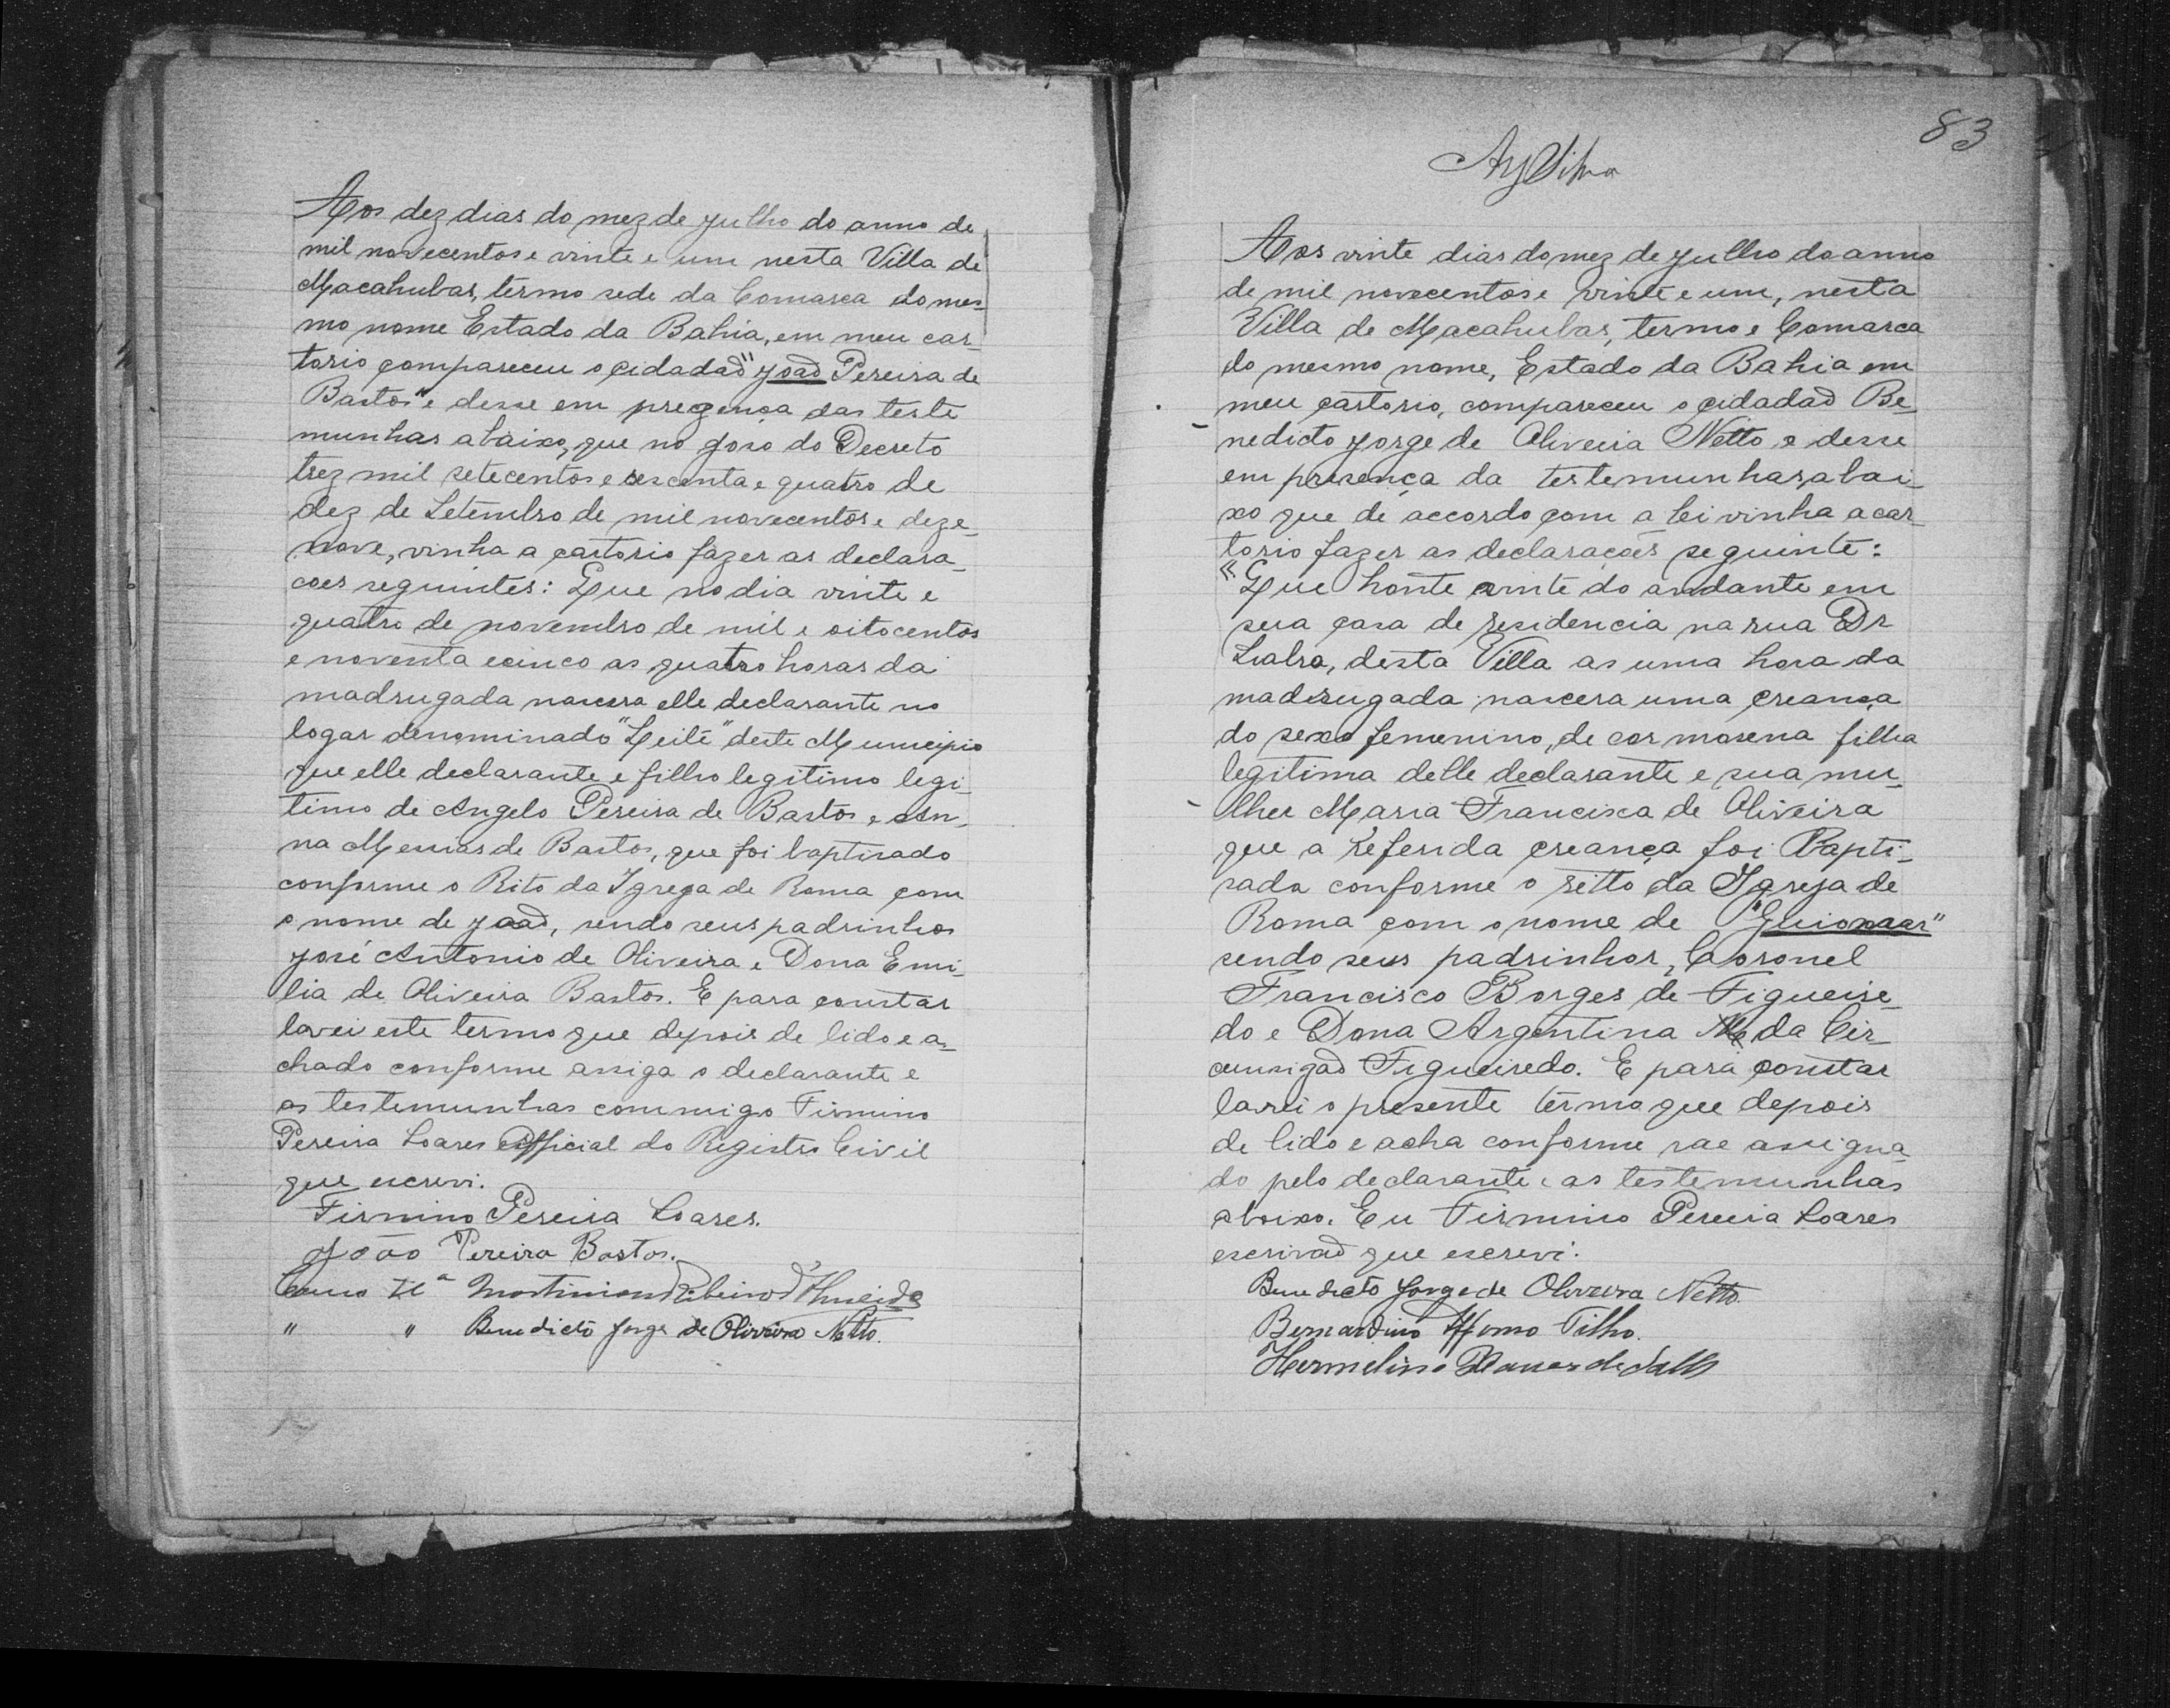 Aos dez dias do mez de julho do anno de
mil novecentos e vinte e um nesta Villa de
Macahubas, termo sede da Comarca do mes-
mo nome Estado da Bahia, em meu car-
torio compareceu o cidadaõ "Joaõ Pereira de
Bastos" e desse em prezença das teste
munhas abaixo, que no goso do Decreto
trez mil setecentos e sescenta e quatro de
dez de Setembro de mil novecentos e deze-
nove, vinha a cartorio fazer as declara-
coes seguintes: Que no dia vinte e
quatro de novembro de mil e oitocentos
e noventa e cinco as quatro horas da
madrugada nascera elle declarante no
logar denominado "Leite" deste Municipio
que elle declarante e filho legitimo legi-
timo de Angelo Pereira de Bastos e An-
na Messias de Bastos, que foi baptisado
conforme o Rito da Igreja de Roma com
o nome de Joaõ, sendo seus padrinhos
José Antonio de Oliveira e Dona Emi-
lia de Oliveira Bastos. E para constar
lavei este termo que depois de lido e a-
chado conforme assiga o declarante e
as testemunhas commigo Firmino
Pereira Soares Official do Registro Civil
que escrevi.
Firmino Pereira Soares.
João Pereira Bastos.
Como Tª Martiniano Ribeiro d'Almeida
" " Benedicto Jorge de Oliveira Netto.
83
Aos vinte dias do mez de julho do anno
de mil novecentos e vinte e um, nesta
Villa de Macahubas, termo e Comarca
do mesmo nome, Estado da Bahia em
meu cartorio, compareceu o cidadaõ Be-
nedicto Jorge de Oliveira Netto e desse
em presença da testemunhas abai-
xo que de accordo com a lei vinha a car-
torio fazer as declaraçoes seguinte:
"Que honte vinte do andante em
sua casa de residencia na rua Dr
Seabra, desta Villa as uma hora da
madrugada nascera uma creança
do sexo femenino, de cor morena filha
legitima delle declarante e sua mu-
lher Maria Francisca de Oliveira
que a referida creança foi Bapti-
sada conforme o ritto da Igreja de
Roma com o nome de "Guiomar"
sendo seus padrinhos, Coronel
Francisco Borges de Figueire-
do e Dona Argentina Mª da Cir-
cumsigaõ Figueiredo. E para constar
lavrei o presente termo que depois
de lido e acha conforme vae assigna-
do pelo declarante e as testemunhas
abaixo. Eu Firmino Pereira Soares
escrivaõ que escrevi.
Benedicto Jorge de Oliveira Netto.
Bernardino Filho.
Hermelino de Salles